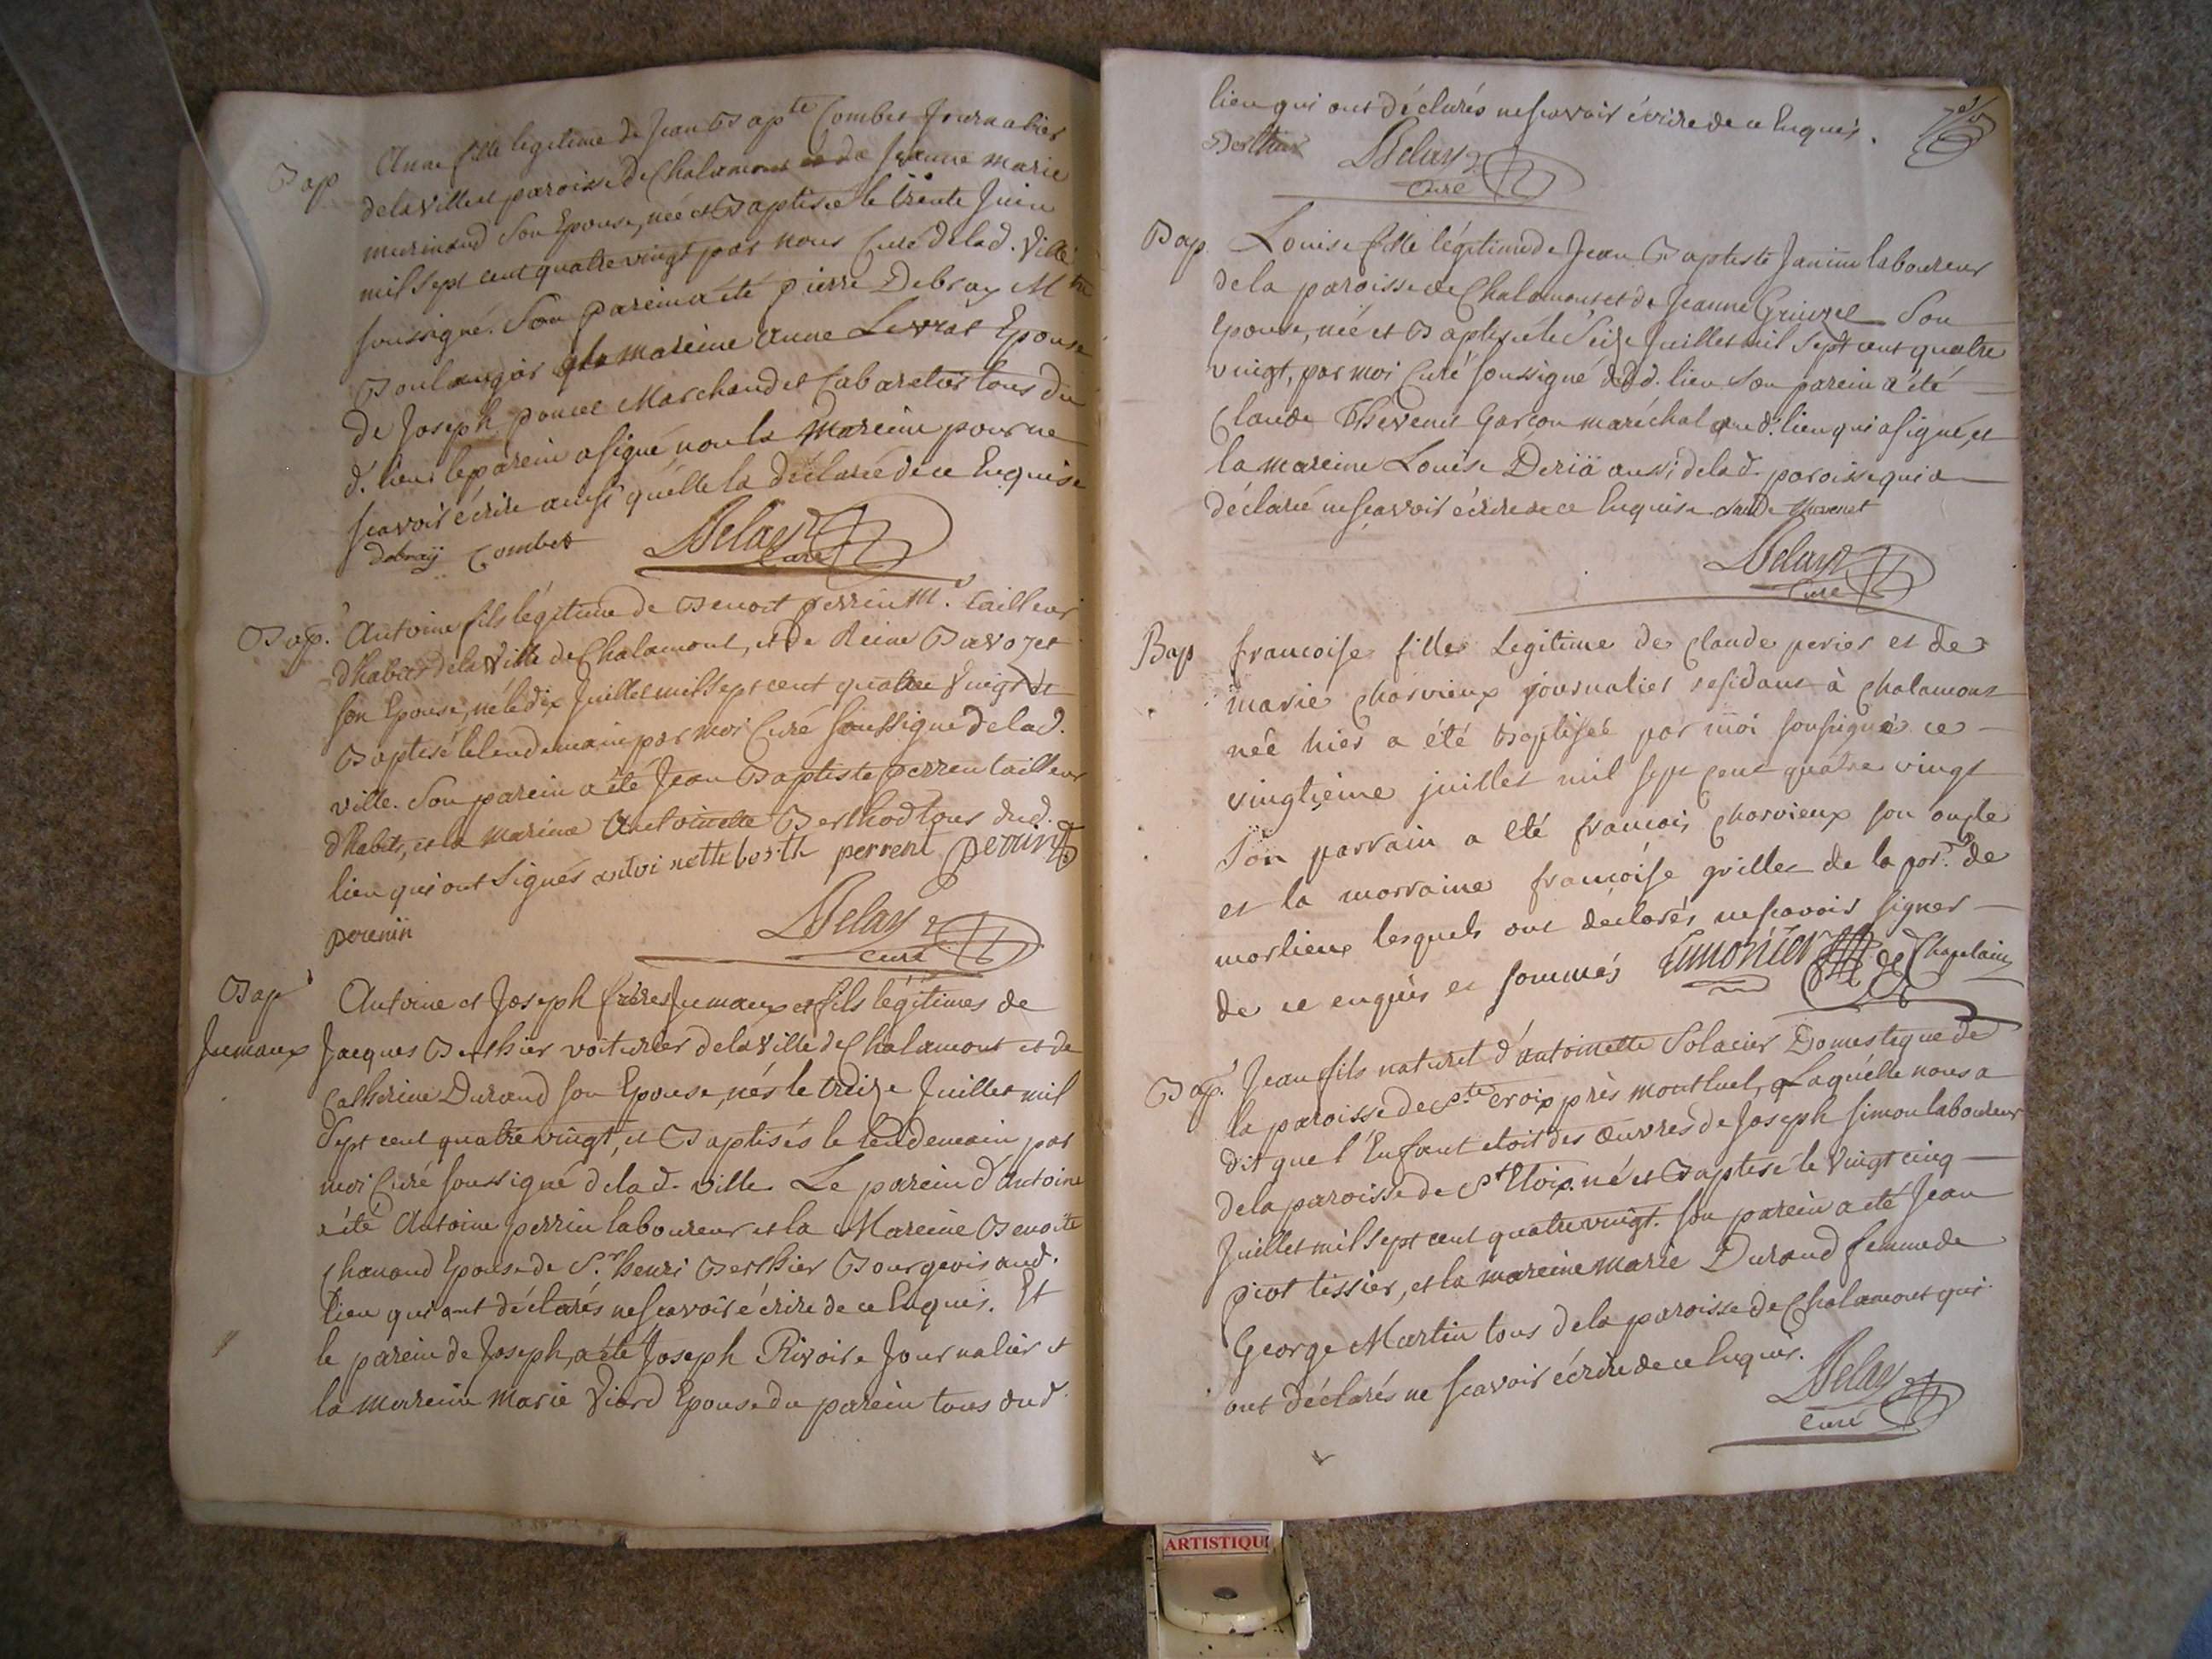 Bap Anne fille legitime de Jean Bapte Combet Journalier
de la Ville et paroisse de Chalamont et de Jeanne Marie
murinand Son Epouse, née et Baptisée le trente Juin
mil Sept cent quatre vingt par nous Curé de lad. Ville
soussigné. Son parein a été pierre Debray Mtre
Boulanger et la mareine Anne Levrat Epouse
De Joseph poncet Marchand et Cabaretier tous du
d. lieu, le parein a signé, non la Mareine pour ne
scavoir écrire ainsi qu'elle la déclaré de ce Enquise
debraÿ Combet Delay curé
Bap. Antoine fils légitime de Benoit perrin Me. tailleur
d'habits de la Ville de Chalamont, et de Reine Bavozet
son Epouse, né le dix Juillet mil Sept cent quatre Vingt et
Baptisé le lendemain par moi Curé Soussigné de lad.
ville. Son parein a été Jean Baptiste perren tailleur
d'habits, et la mareine Antoinette Berthod tous dud.
lieu qui ont Signés antoi nette berth perrent perrin
perenin Delay curé
Bap Antoine et Joseph frères Jumaux et fils légitimes de
Jumaux Jacques Berthier voiturier de la Ville de Chalamont et de
Catherine Durand son Epouse, nés le treize Juillet mil
Sept cent quatre vingt, et Baptisés le lendemain par
moi Curé soussigné de lad. ville. Le parein d'Antoine
a été Antoine perrin laboureur et la Mareine Benoite
chanand Epouse de Sr. henri Berthier Bourgeois aud.
lieu qui ont déclarés ne scavoir écrire de ce Enquis. Et
le parein de Joseph, a été Joseph Rivoire Journalier et
la mareine Marie Viard Epouse du parein tous dud
lieu qui ont déclarés ne scavoir écrire de ce Enquis.
Berthier Delay
Curé
Bap. Louise fille légitime de Jean Baptiste Janin laboureur
de la paroisse de Chalamont et de Jeanne Son
Epouse, née et Baptisée le Seize Juillet mil Sept cent quatre
vingt, par moi Curé soussigné dud. lieu Son parein a été
Claude Thevenet Garçon maréchal aud. lieu qui a signé, et
la mareine Louise Deriä aussi de lad. paroisse qui a
déclaré ne scavoir écrire de ce Enquise Claude thevenet
Delay
Curé
Bap francoise fille Legitime de Claude perier et de
marie chorvieux journalier residant à chalamont
née hier a été Baptisée par moi soussigné ce
vingtieme juillet mil sept cent quatre vingt
Son parrain a eté francois chorvieux son oncle
et la marraine francoise grillet de la par. de
morlieux lesquels ont declarés ne scavoir signer
de ce enquis et sommés Limonier Chapelain
Bap. Jean fils naturel d'antoinette Solacier Domestique de
la paroisse de Ste croix près montluel, Laquelle nous a
dit que l'Enfant etoit des œuvres de Joseph simon laboureur
de la paroisse de St Eloix. né et Baptisé le Vingt cinq
Juillet mil Sept cent quatre vingt. Son parein a été Jean
picot tissier, et la mareine Marie Durand femme de
George Martin tous de la paroisse de Chalamont qui
ont déclarés ne scavoir écrire de ce Enquis. Delay
Curé
ARTISTIQU